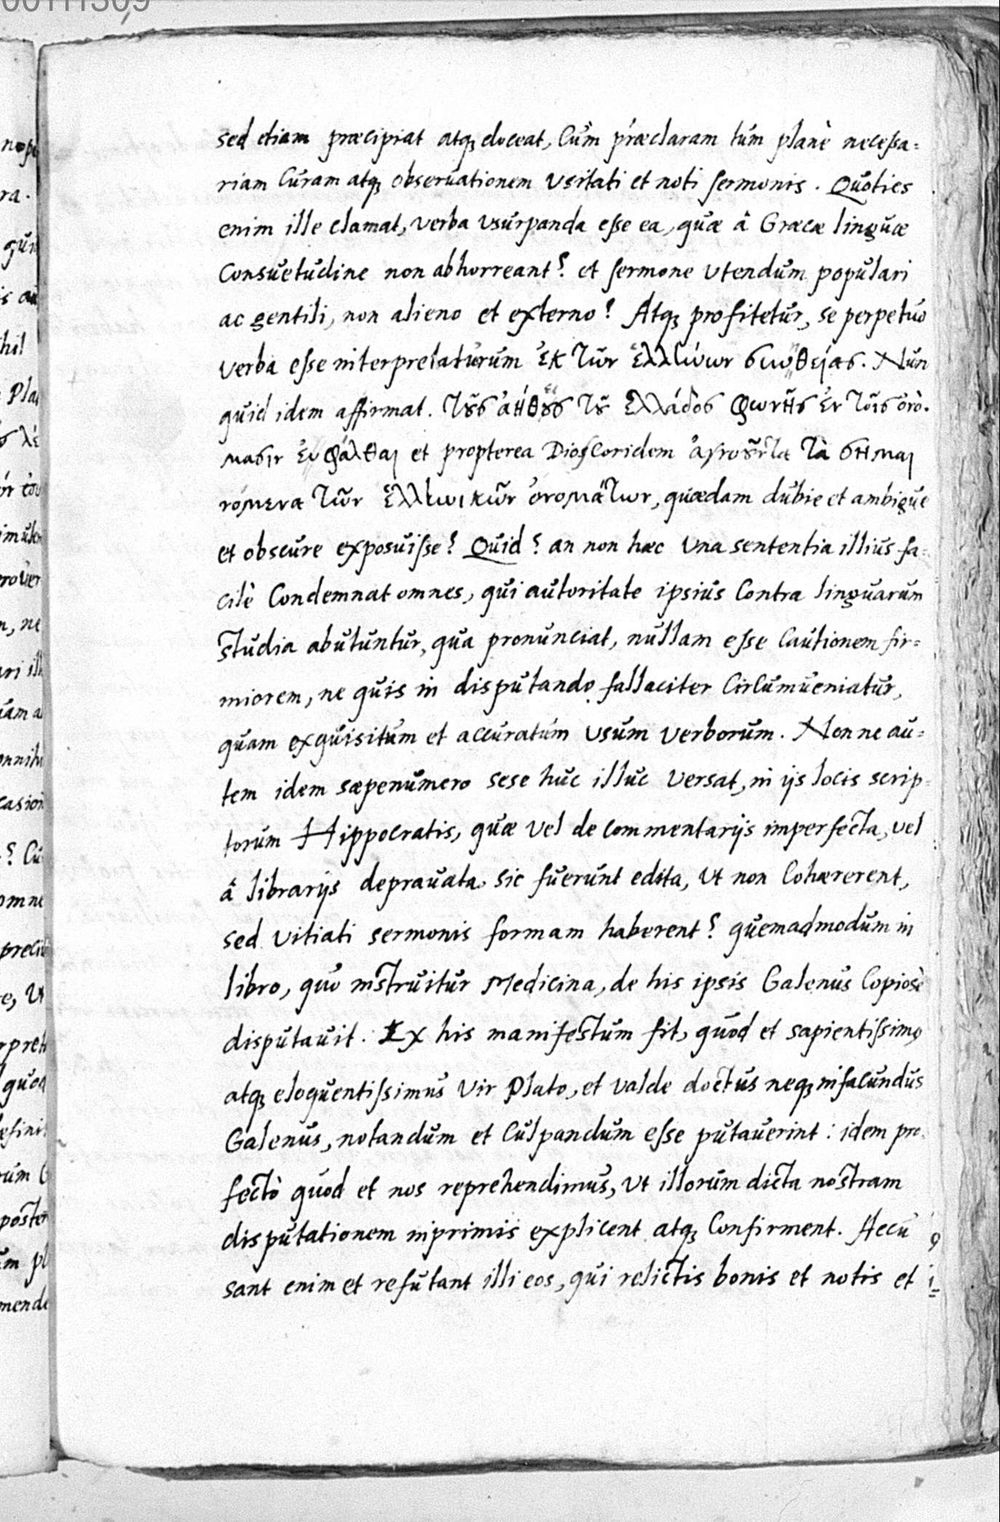 sed etiam præcipiat atq; doceat, cùm præclaram tùm planè necessa-
riam curam atq; obseruationem vsitati et noti sermonis. Quoties
enim ille clamat, verba vsurpanda esse ea, quæ à Græcæ linguæ
consuetudine non abhorreant? et sermone vtendum populari
ac gentili, non alieno et externo? Atq; profitetur, se perpetuò
verba esse interpretaturum ἐκ τῶν ἑλλήνων συνηθείας. Nun
quid idem affirmat. τοὺς ἀήθους τῆς Ἑλλάδος φωνῆς ἐν τοῖς ὀνό-
μασιν ἐσφάλθαι et propterea Dioscoridem ἀγνοοῦντα τὰ σημαι
νόμενα τῶν ἑλληνικῶν ὀνομάτων, quædam dubie et ambigue
et obscure exposuisse? Quid? an non hæc vna sententia illius fa-
cilè condemnat omnes, qui autoritate ipsius contra linguarum
studia abutuntur, qua pronunciat, nullam esse cautionem fir-
miorem, ne quis in disputando fallaciter circumueniatur,
quam exquisitum et accuratum vsum verborum. Nonne au-
tem idem sæpenumero sese huc illuc versat, in ijs locis scrip-
torum Hippocratis, quæ vel de commentarijs imperfecta, vel
à librarijs deprauata sic fuerunt edita, vt non cohærerent,
sed vitiati sermonis formam haberent? quemadmodum in
libro, quo instruitur Medicina, de his ipsis Galenus copiosè
disputauit. Ex his manifestum fit, quod et sapientissimo
atq; eloquentissimus vir Plato, et valde doctus neq; infacundus
Galenus, notandum et culpandum esse putauerint: idem pro-
fectò quod et nos reprehendimus, vt illorum dicta nostram
disputationem inprimis explicent atq; confirment. Accu
sant enim et refutant illi eos, qui relictis bonis et notis et